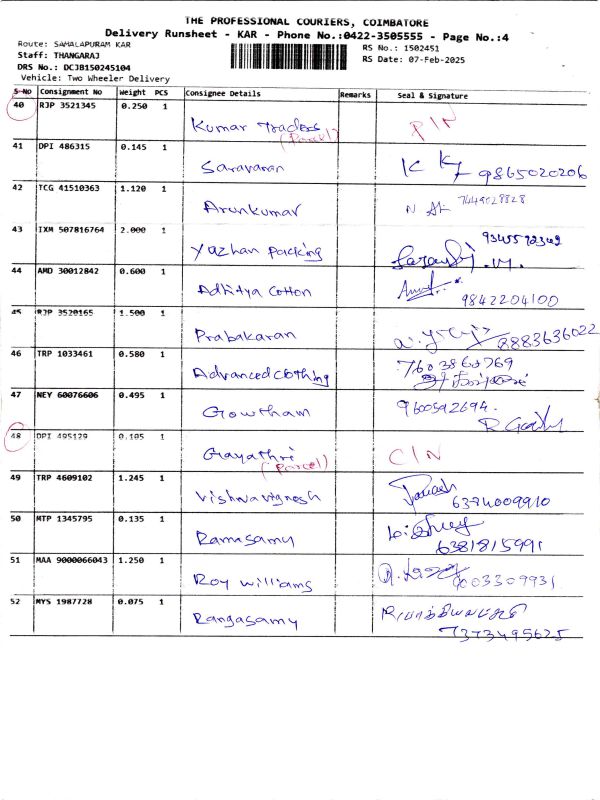 THE PROFESSIONAL COURIERS, COIMBATORE
Delivery Runsheet - KAR - Phone No.:0422-3505555 - Page No.:4
Route: SAMALAPURAM KAR
RS No.: 1502451
Staff: THANGARAJ
RS Date: 07-Feb-2025
DRS No.: DCJB150245104
Vehicle: Two Wheeler Delivery
S-NO Consignment No Weight PCS Consignee Details Remarks Seal & Signature
40 RJP 3521345 0.250 1
Kumar Traders PIN
(Parcel)
41 DPI 486315 0.145 1
Saravanan 9865020206
42 TCG 41510363 1.120 1
Arunkumar
43 IXM 507816764 2.000 1
Yazhan packing
44 AMD 30012842 0.600 1
Adhitya Cotton 9842204100
45 RJP 3520165 1.500 1
Prabakaran 8883636022
46 TRP 1033461 0.580 1
Advanced clothing 7603860769
47 NEY 60076606 0.495 1
Gowtham 9600592694.
48 DPI 495129 0.105 1
Gayathri CIN
(Parcel)
49 TRP 4609102 1.245 1
Vishvavignesh 6374009910
50 MTP 1345795 0.135 1
Ramasamy 6381815991
51 MAA 9000066043 1.250 1
Roy williams 9003309931
52 MYS 1987728 0.075 1
Rangasamy
7373495625